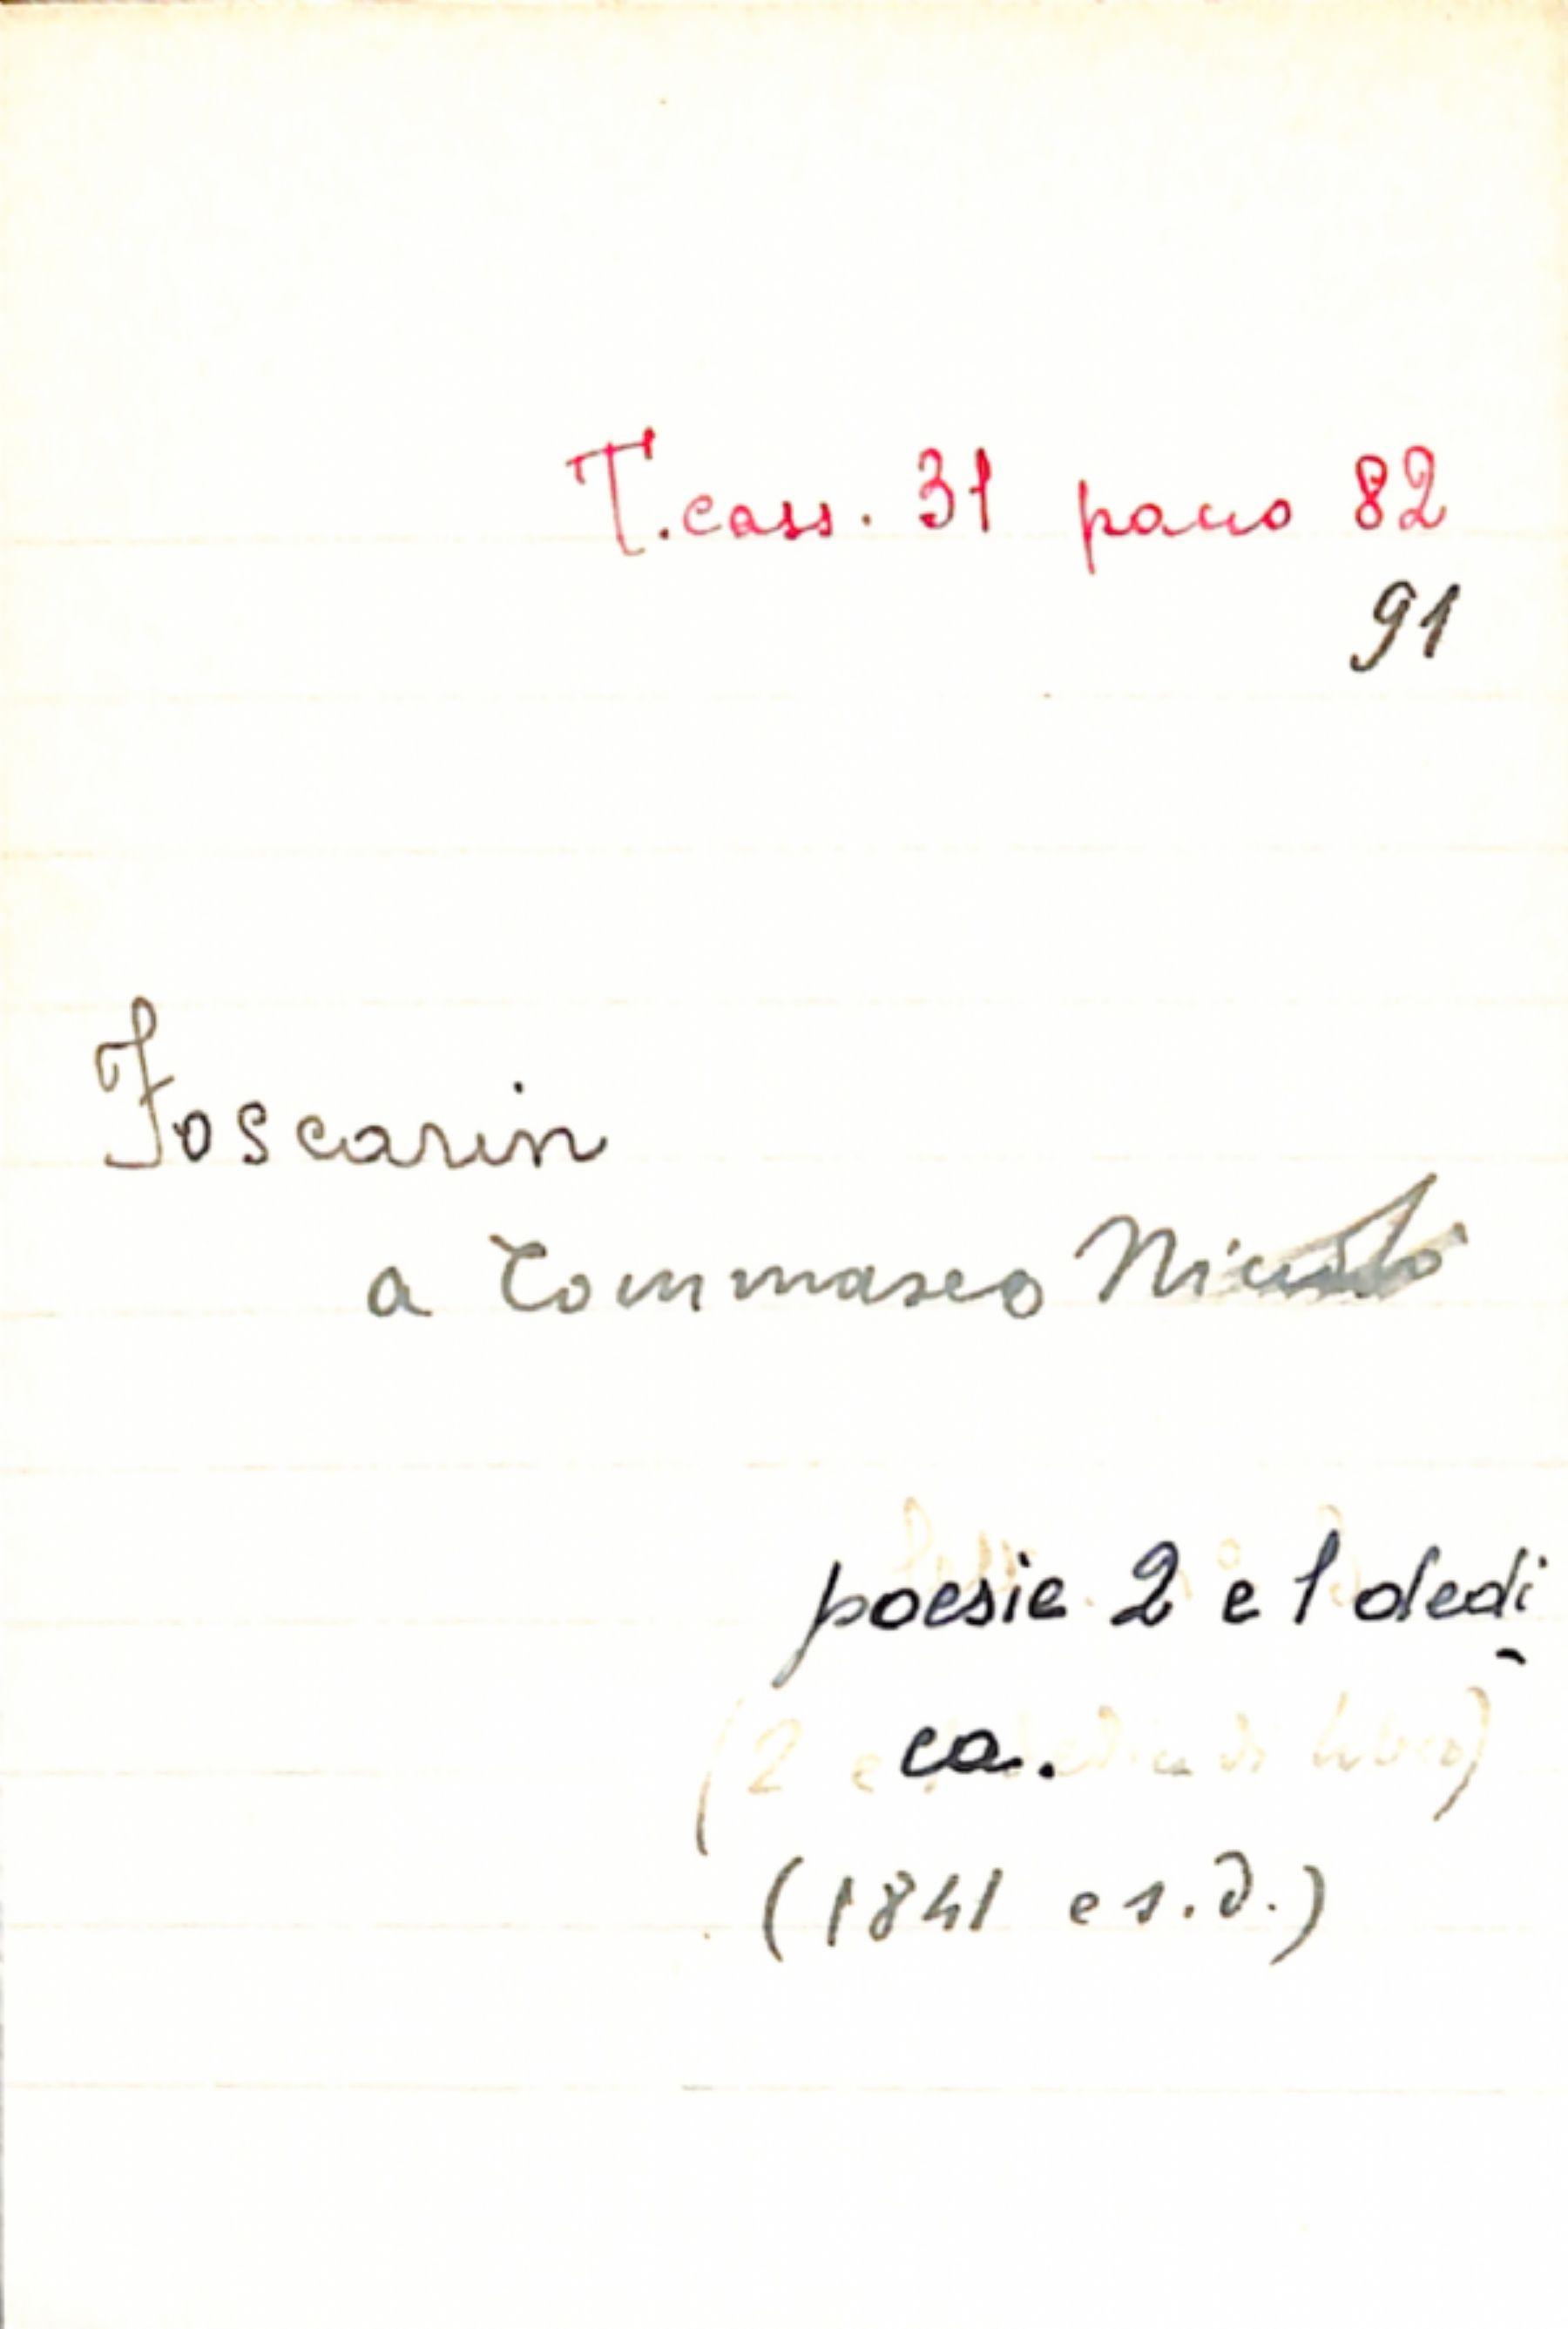 T. cass. 31 pacco 82
91
Foscarin
a Tommaseo Nicolò
poesie 2 e 1 dedi
-
ca.
(2 e dedica di libro)
(1841 e s.d.)